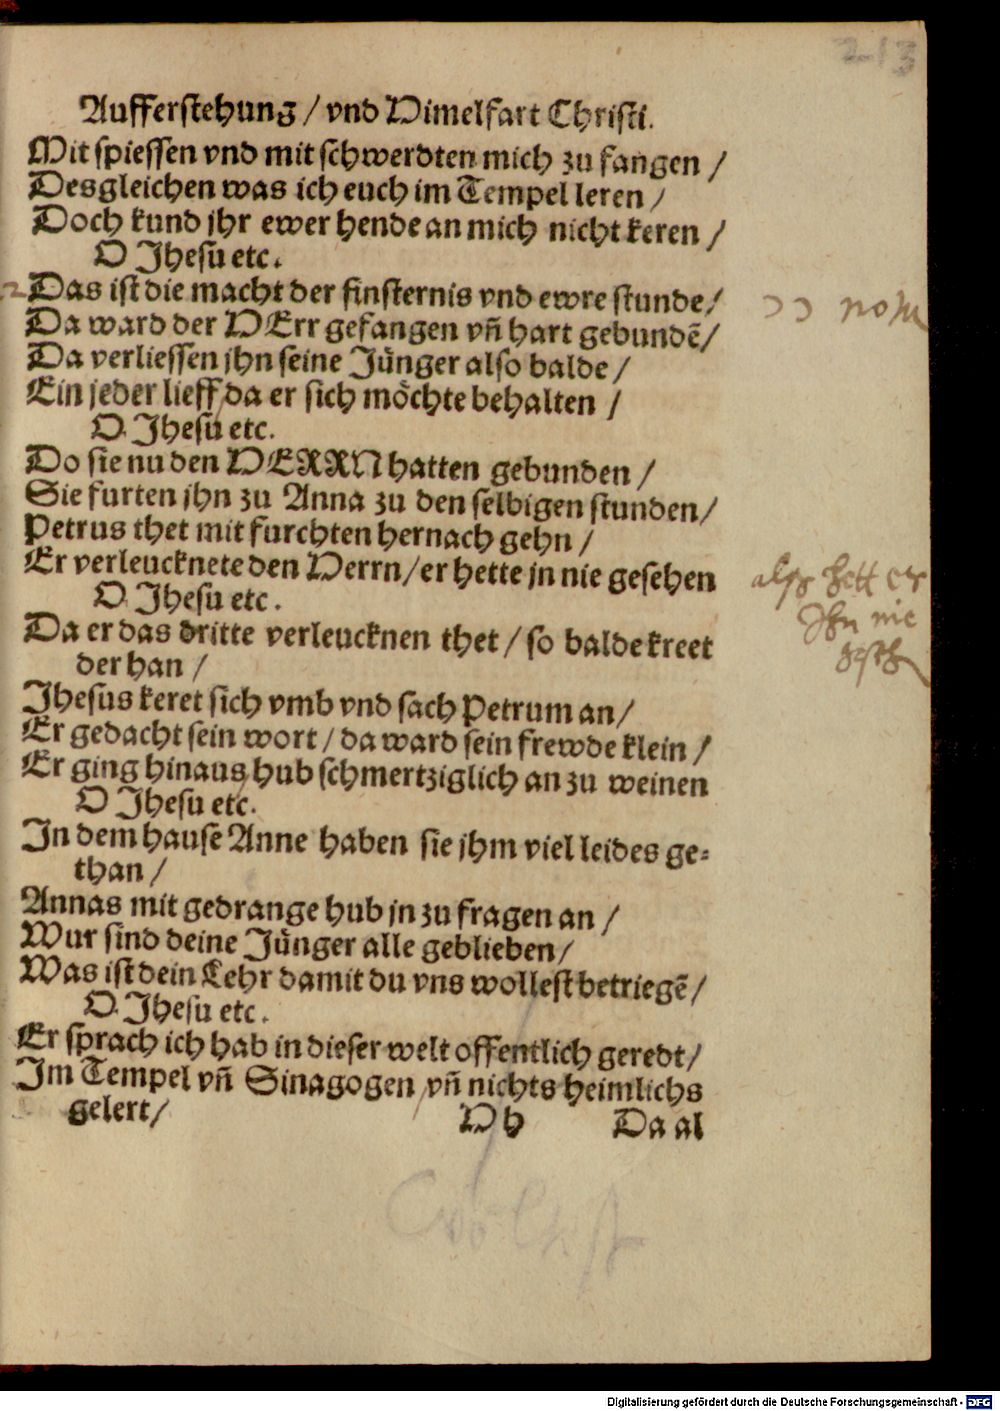 213
Aufferstehung / vnd Himelfart Christi.
Mit spiessen vnd mit schwerdten mich zu fangen /
Desgleichen was ich euch im Tempel leren /
Doch kund jhr ewer hende an mich nicht keren /
O Jhesu etc.
Das ist die macht der finsternis vnd ewre stunde /
Da ward der HErr gefangen vñ hart gebundẽ /
Da verliessen jhn seine Jünger also balde /
Ein jeder lieff / da er sich möchte behalten /
O Jhesu etc.
Do sie nu den HERRN hatten gebunden /
Sie furten jhn zu Anna zu den selbigen stunden /
Petrus thet mit furchten hernach gehn /
Er verleucknete den Herrn / er hette jn nie gesehen
als hett er
Ihn nie
O Jhesu etc.
Da er das dritte verleucknen thet / so balde kreet
der han /
Jhesus keret sich vmb vnd sach Petrum an /
Er gedacht sein wort / da ward sein frewde klein /
Er ging hinaus / hub schmertziglich an zu weinen
O Jhesu etc.
In dem hause Anne haben sie jhm viel leides ge=
than /
Annas mit gedrange hub jn zu fragen an /
Wur sind deine Jünger alle geblieben /
Was ist dein Lehr damit du vns wollest betriegẽ /
O Jhesu etc.
Er sprach ich hab in dieser welt offentlich geredt /
Im Tempel vñ Sinagogen / vñ nichts heimlichs
gelert /
H h Da al
Digitalisierung gefördert durch die Deutsche Forschungsgemeinschaft - DFG